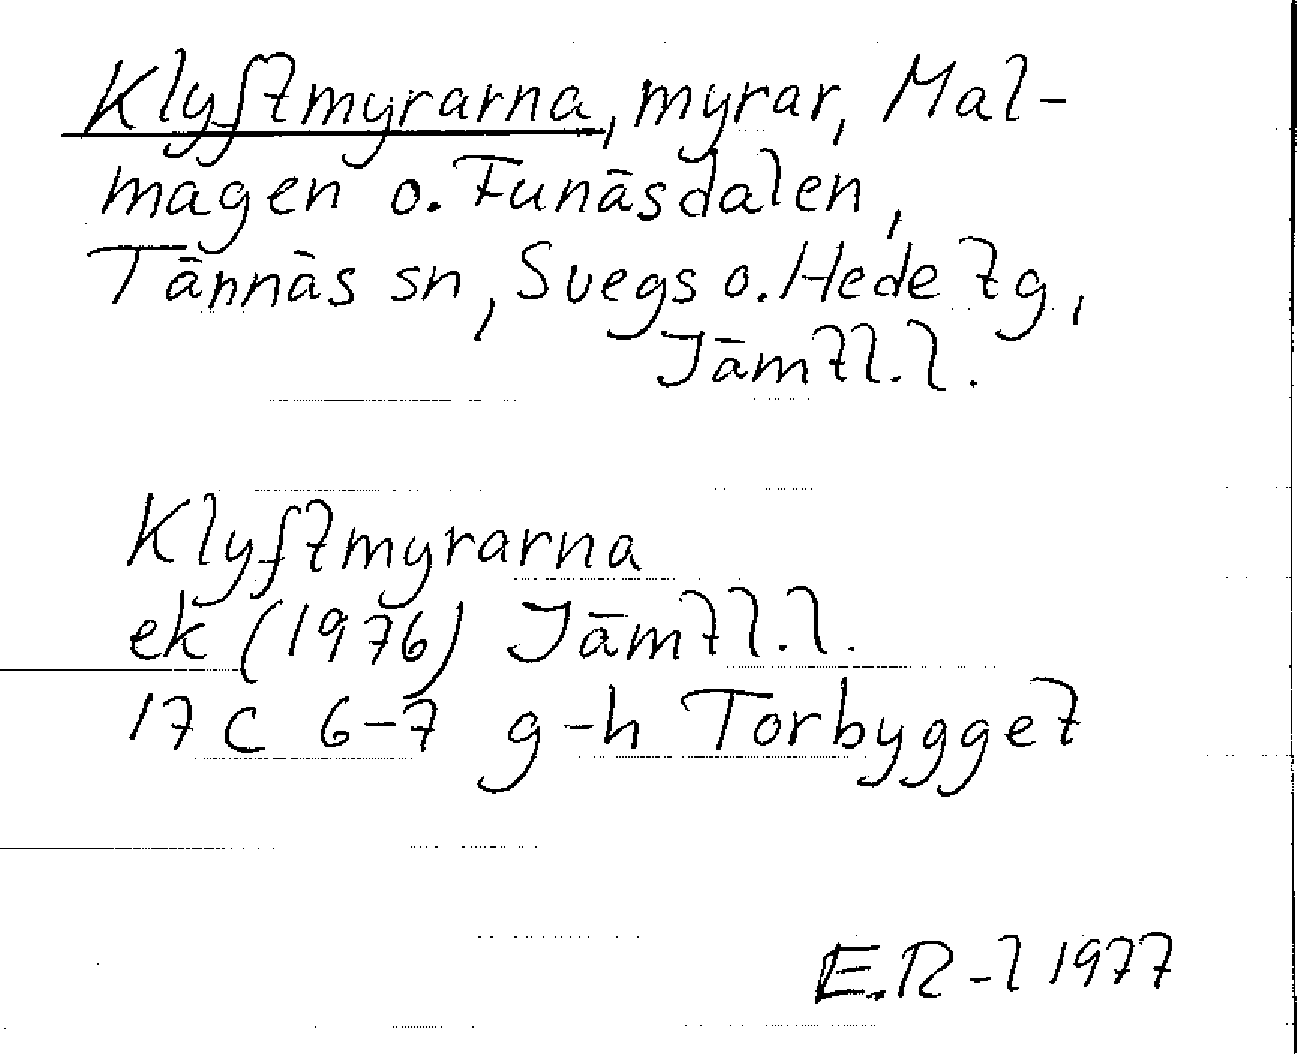 Klyftmyrarna, myrar, Mal-
magen o. Funäsdalen,
Tännäs sn, Svegs o. Hede tg,
Jämtl. l.
Klyftmyrarna
ek (1976) Jämtl. l.
17 C 6-7 g-h Torbygget
E.R-l 1977